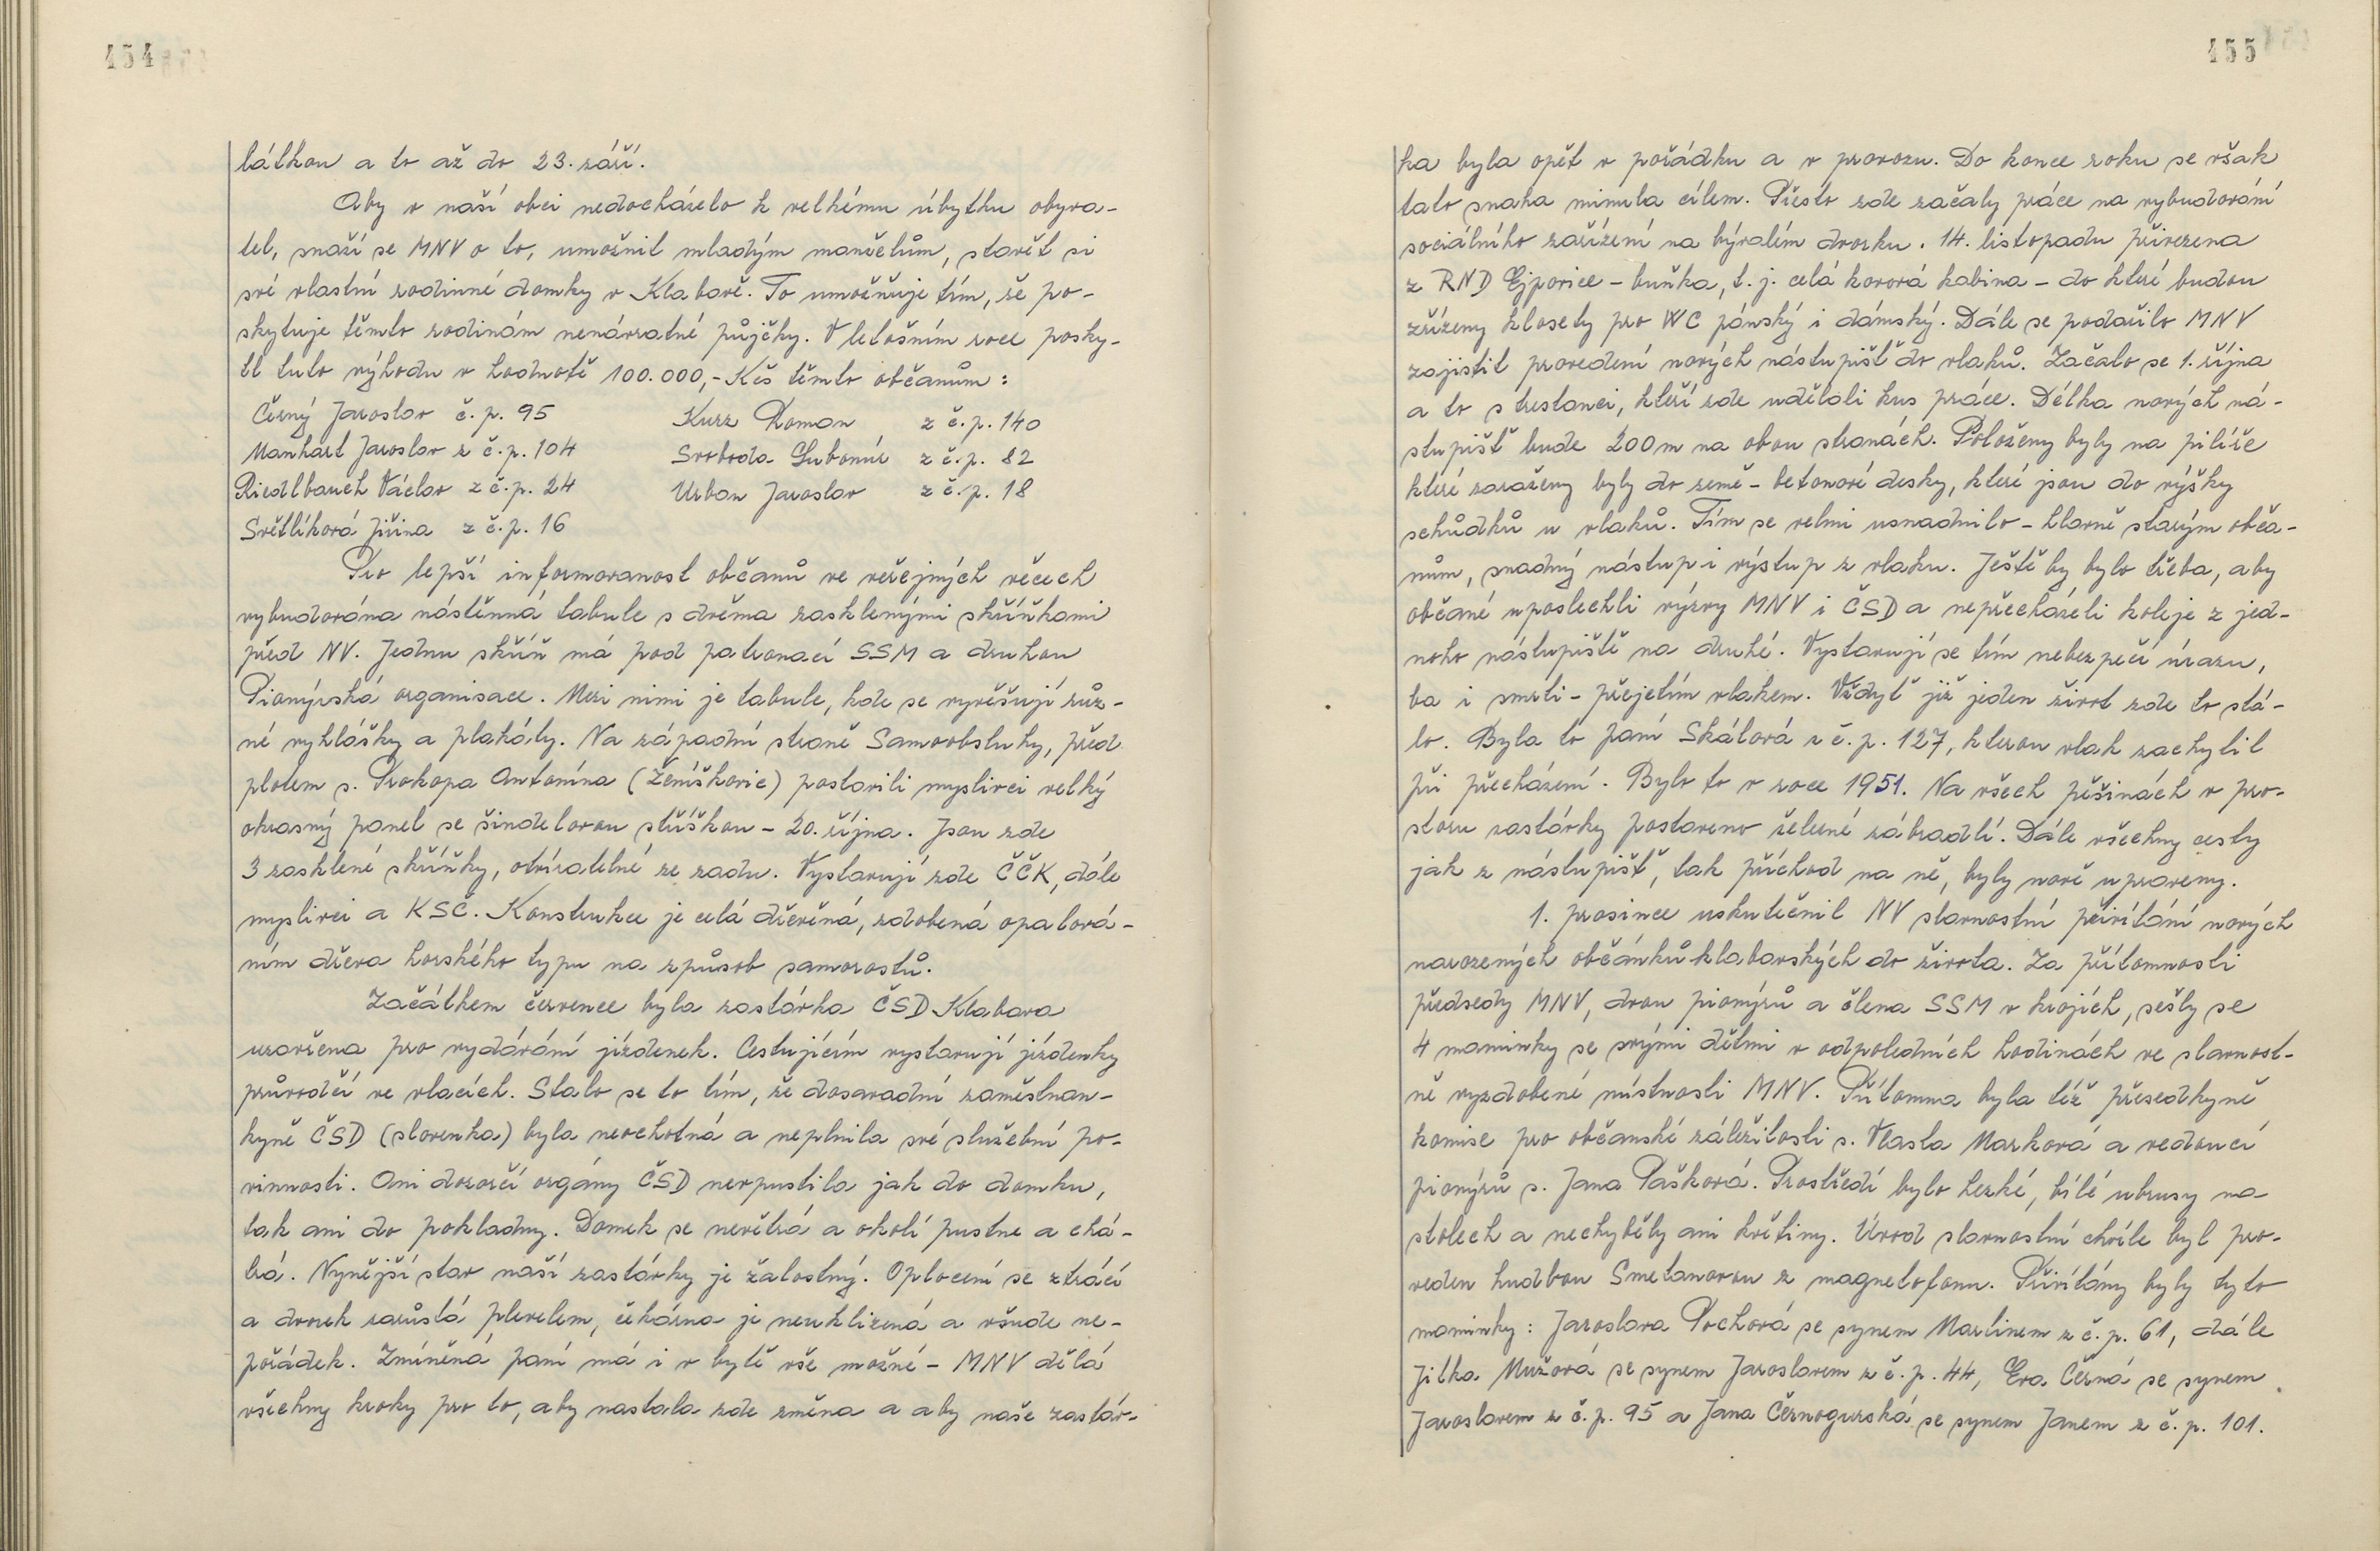 454
látkou a to až do 23. září.
Aby v naší obci nedocházelo k velkému úbytku obyva-
tel, snaží se MNV o to, umožnit mladým manželům, stavět si
své vlastní rodinné domky v Klabavě. To umožňuje tím, že po-
skytuje těmto rodinám nenávratné půjčky. V letošním roce posky-
tl tuto výhodu v hodnotě 100.000,- Kčs těmto občanům:
Černý Jaroslav č.p. 95 Kurz Roman z č.p. 140
Manhart Jaroslav z č.p. 104 Svoboda Lubomír z č.p. 82
Riedlbauch Václav z č.p. 24 Urban Jaroslav z č.p. 18
Světlíková Jiřina z č.p. 16
Pro lepší informovanost občanů ve veřejných věcech
vybudována nástěnná tabule s dvěma zasklenými skříňkami
před NV. Jednu skříň má pod patronací SSM a druhou
Pionýrská organisace. Mezi nimi je tabule, kde se vyvěšují růz-
né vyhlášky a plakáty. Na západní straně Samoobsluhy, před
plotem s. Prokopa Antonína (Ženíškovic) postavili myslivci velký
okrasný panel se šindelovou stříškou - 20. října. Jsou zde
3 zasklené skříňky, otvíratelné ze zadu. Vystavují zde ČČK, dále
myslivci a KSČ. Konstrukce je celá dřevěná, zdobená opalová-
ním dřeva horského typu na způsob samorostů.
Začátkem července byla zastávka ČSD Klabava
uzavřena pro vydávání jízdenek. Cestujícím vystavují jízdenky
průvodčí ve vlacích. Stalo se to tím, že dosavadní zaměstnan-
kyně ČSD (slovenka) byla neochotná a neplnila své služební po-
vinnosti. Ani dozorčí orgány ČSD nevpustila jak do domku,
tak ani do pokladny. Domek se nevětrá a okolí pustne a chá-
trá. Nynější stav naší zastávky je žalostný. Oplocení se ztrácí
a dvorek zarůstá plevelem, čekárna je neuklizená a všude ne-
pořádek. Zmíněná paní má i v bytě vše možné - MNV dělá
všechny kroky pro to, aby nastala zde změna a aby naše zastáv-
455
ka byla opět v pořádku a v provozu. Do konce roku se však
tato snaha minula cílem. Přesto zde začaly práce na vybudování
sociálního zařízení na bývalém dvorku. 14. listopadu přivezena
z RND Ejpovice - buňka, t.j. celá kovová kabina - do které budou
zřízeny klosety pro WC pánský i dámský. Dále se podařilo MNV
zajistit provedení nových nástupišť do vlaků. Začalo se 1. října
a to s trestanci, kteří zde udělali kus práce. Délka nových ná-
stupišť bude 200 m na obou stranách. Položeny byly na pilíře
které zaraženy byly do země - betonové desky, které jsou do výšky
schůdků u vlaků. Tím se velmi usnadnilo - hlavně starým obča-
nům, snadný nástup i výstup z vlaku. Ještě by bylo třeba, aby
občané uposlechli výzvy MNV i ČSD a nepřecházeli koleje z jed-
noho nástupiště na druhé. Vystavují se tím nebezpečí úrazu,
ba i smrti - přejetím vlakem. Vždyť již jeden život zde to stá-
lo. Byla to paní Skálová z č.p. 127, kterou vlak zachytil
při přecházení. Bylo to v roce 1951. Na všech pěšinách v pro-
storu zastávky postaveno železné zábradlí. Dále všechny cesty
jak z nástupišť, tak příchod na ně, byly nově upraveny.
1. prosince uskutečnil NV slavnostní přivítání nových
narozených občánků klabavských do života. Za přítomnosti
předsedy MNV, dvou pionýrů a člena SSM v krojích, sešly se
4 maminky se svými dětmi v odpoledních hodinách ve slavnost-
ně vyzdobené místnosti MNV. Přítomna byla též přesedkyně
komise pro občanské záležitosti s. Vlasta Marková a vedoucí
pionýrů s. Jana Pašková. Prostředí bylo hezké, bílé ubrusy na
stolech a nechyběly ani květiny. Úvod slavnostní chvíle byl pro-
veden hudbou Smetanovou z magnetofonu. Přivítány byly tyto
maminky: Jaroslava Pochová se synem Martinem z č.p. 61, dále
Jitka Mužová se synem Jaroslavem z č.p. 44, Eva Černá se synem
Jaroslavem z č.p. 95 a Jana Černogurská se synem Janem z č.p. 101.